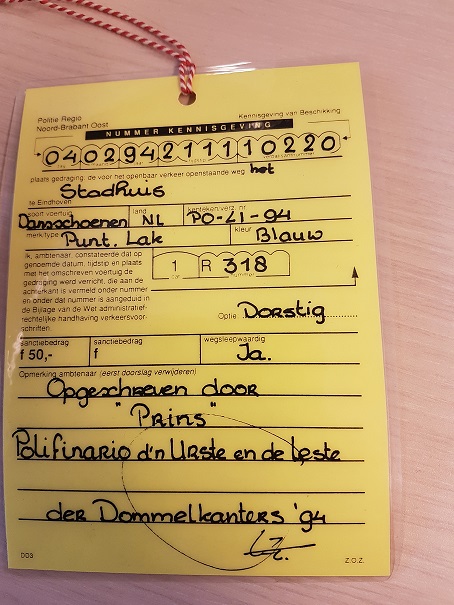 Politie Regio
Noord-Brabant Oost
Kennisgeving van Beschikking
NUMMER KENNISGEVING
0402942111110220
plaats gedraging, die voor het openbaar verkeer openstaande weg het
Stadhuis
te Eindhoven
soort voertuig land kenteken/verz. nr.
Dansschoenen NL PO-LI-94
merk type kleur
Punt. Lak Blauw
Ik, ambtenaar, constateerde dat op
genoemde datum, tijdstip en plaats
met het omschreven voertuig de
gedraging werd verricht, die aan de
achterkant is vermeld onder nummer
en onder dat nummer is aangeduid in
de Bijlage van de Wet administratief-
rechtelijke handhaving verkeersvoor-
schriften.
1 R 318
Optie Dorstig
sanctiebedrag sanctiebedrag wegsleepwaardig
f 50,- f Ja.
Opmerking ambtenaar (eerst doorslag verwijderen)
Opgeschreven door
"Prins"
Polifinario d'n Urste en de Leste
der Dommelkanters '94
D03 Z.O.Z.